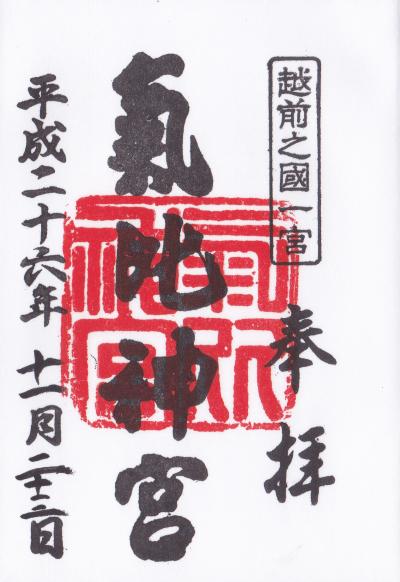 越前之國一宮
奉拝
氣比神宮
氣比神宮
平成二十六年十一月二十三日